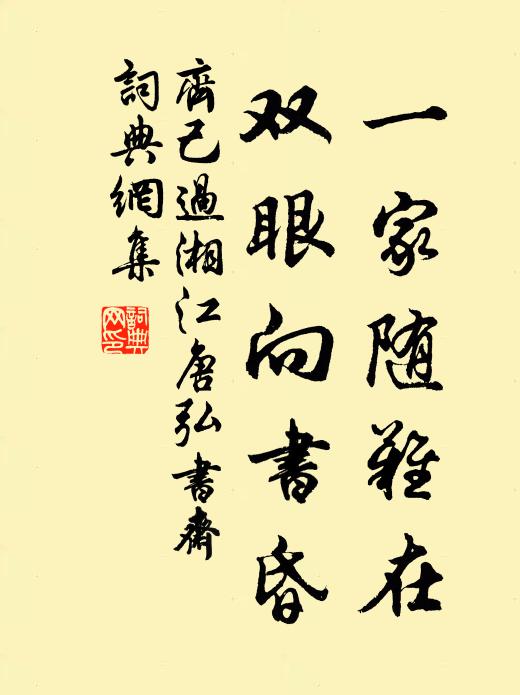 一家随难在
双眼向書昏
齊己過湘江唐弘書齋
詞典網集
詞典
网印